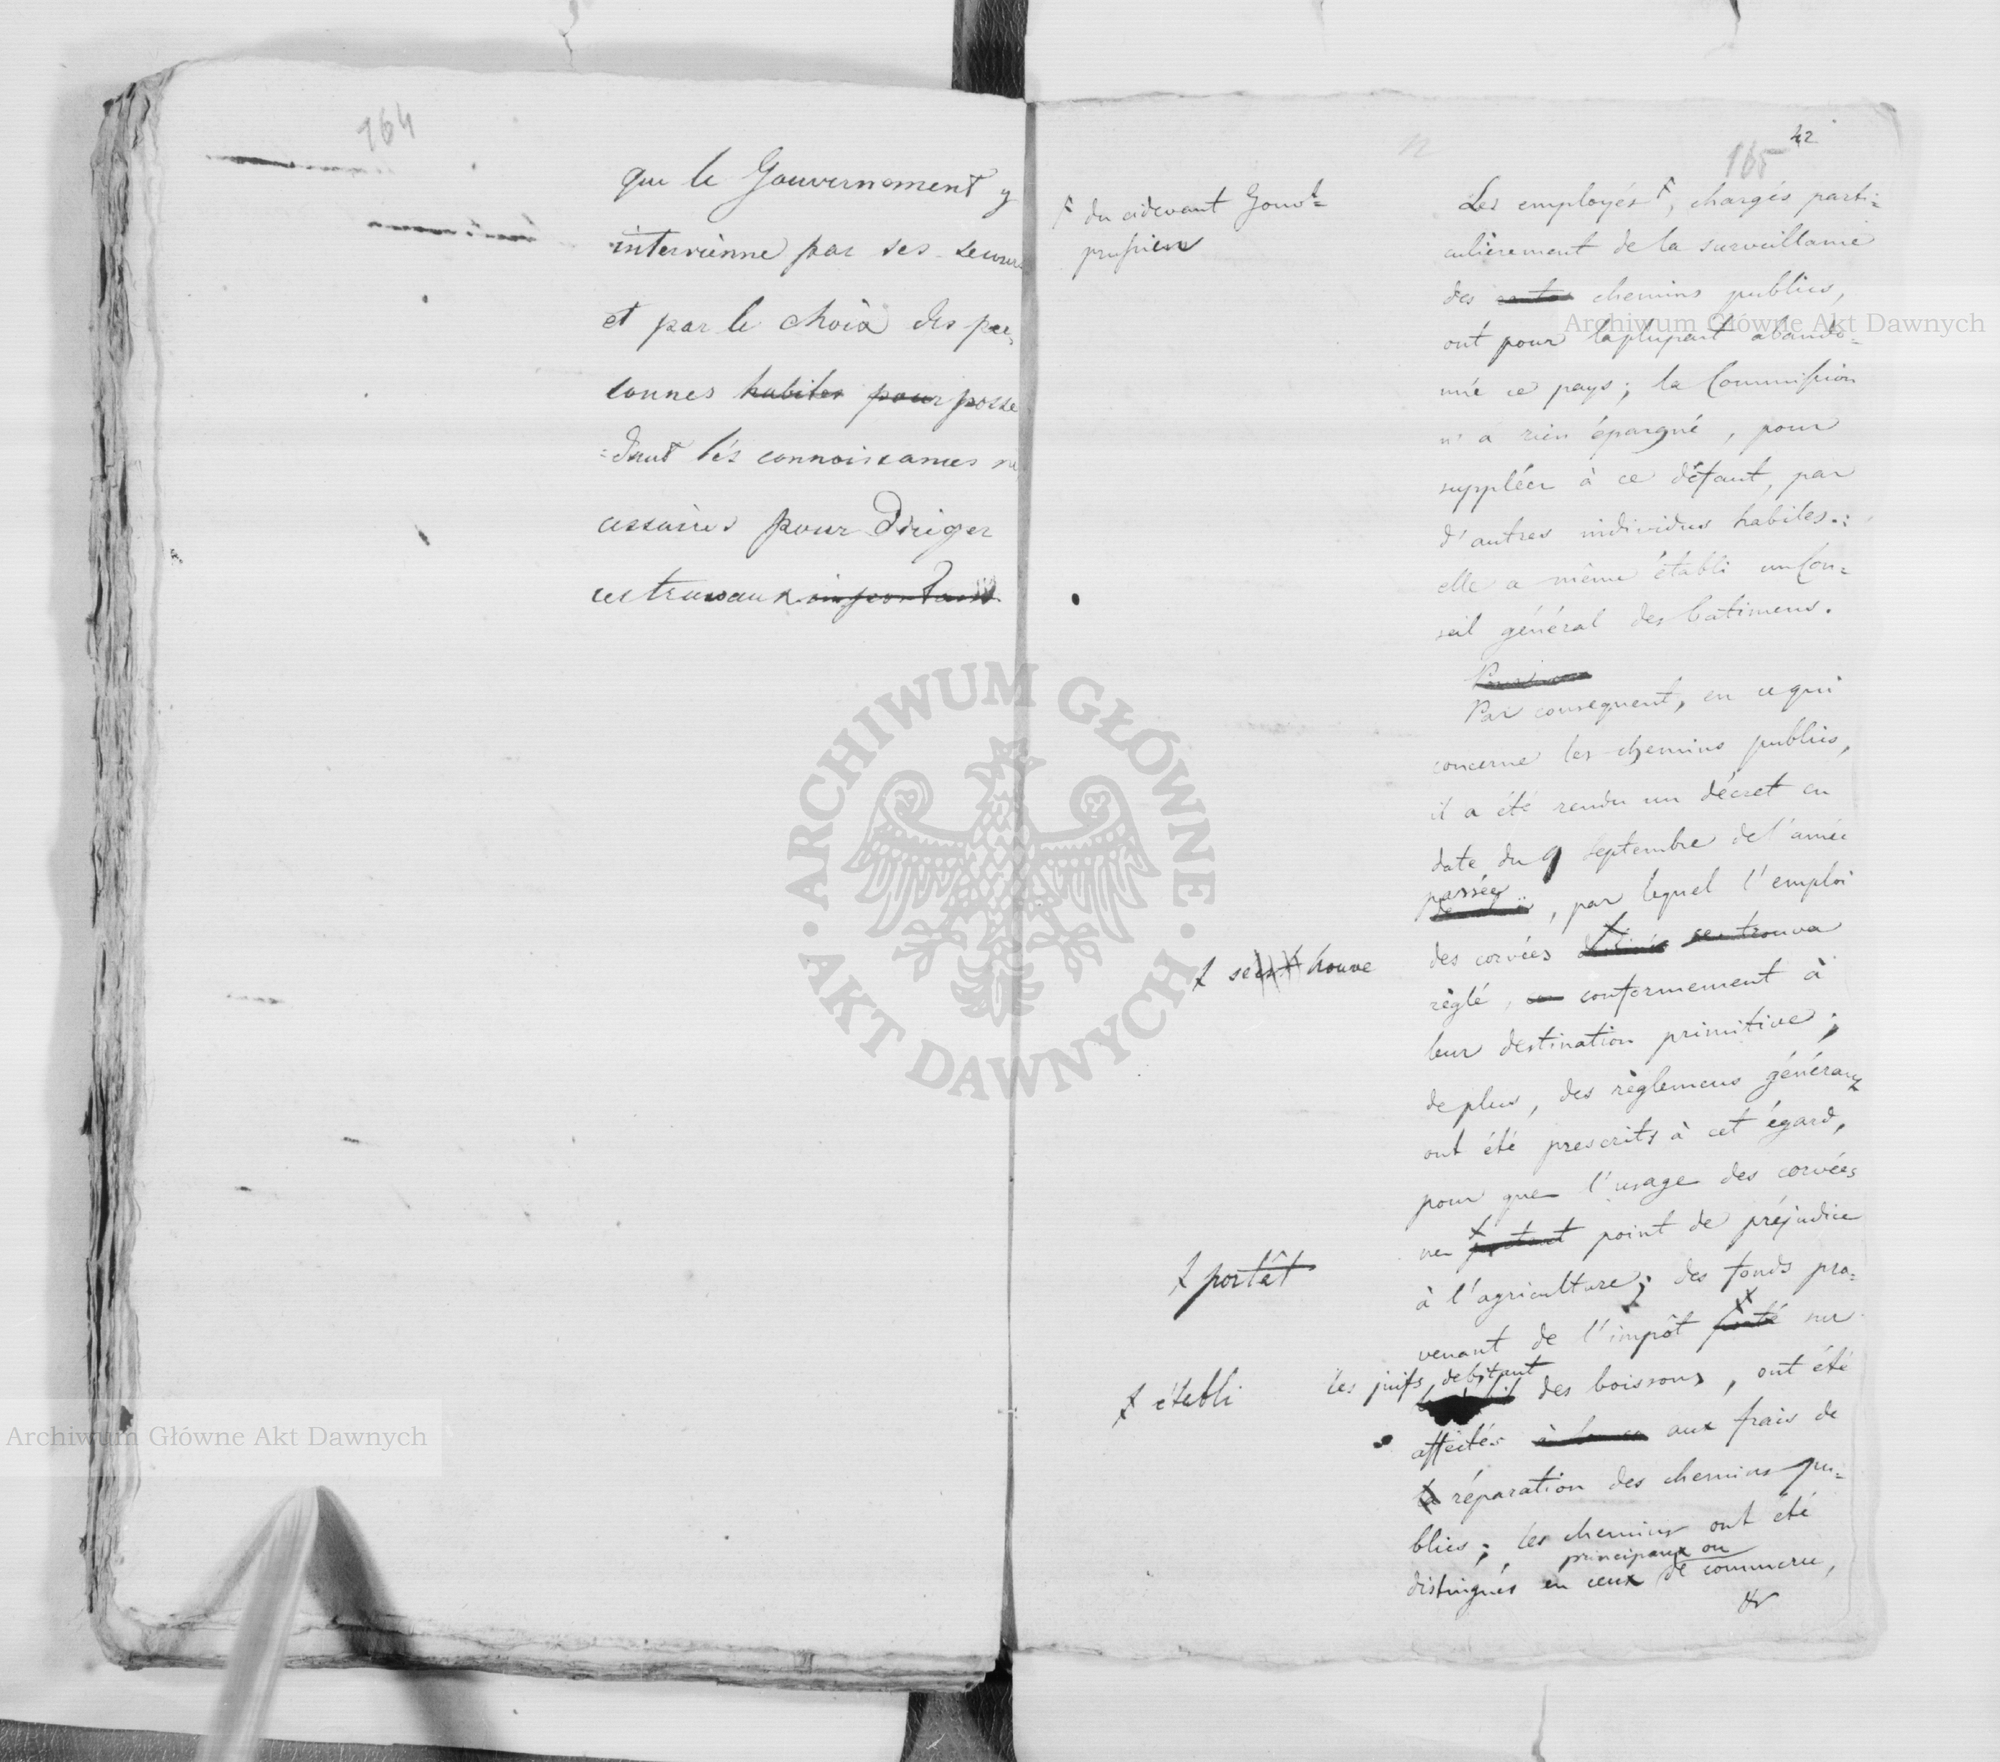 164
que le Gouvernement y
intervienne par ses secours
et par le choix des per
sonnes habiles pour posse
=dant les connoissances né
cessaires pour diriger
ces travaux importans
42
165
du cidevant Gouvt=
prussien
Les employés, chargés parti=
culièrement de la surveillance
des routes chemins publics,
ont pour laplupart abando=
nné ce pays; la Commission
n'a rien épargné, pour
suppléer à ce défaut, par
d'autres individus habiles.:
elle a même établi un Con=
seil général des bâtimens.
Par consequent, en ce qui
concerne les chemins publics,
il a été rendu un décret en
date du 9 septembre de l'année
passée, par lequel l'emploi
des corvées se trouva
se est trouve
règlé, conformement à
leur destination primitive;
deplus, des règlemens généraux
ont été prescrits à cet égard,
pour que l'usage des corvées
ne portant point de préjudice
portât
à l'agriculture; des fonds pro=
venant de l'impôt porté sur
établi
les juifs debitant des boissons, ont été
affectés aux frais de
la réparation des chemins pu=
blics; les chemins ont été
principaux ou
distingués en ceux de commerce,
&
Archiwum Główne Akt Dawnych
Archiwum Główne Akt Dawnych
ARCHIWUM GŁÓWNE
AKT DAWNYCH